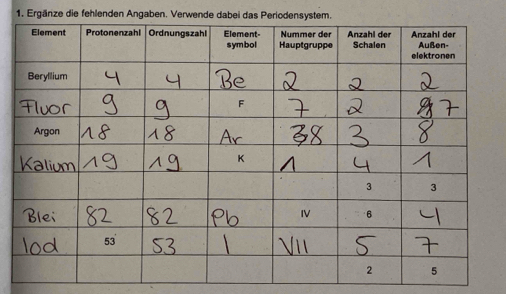 1. Ergänze die fehlenden Angaben. Verwende dabei das Periodensystem.
Element Protonenzahl Ordnungszahl Element- Nummer der Anzahl der Anzahl der
symbol Hauptgruppe Schalen Außen-
elektronen
Beryllium 4 4 Be 2 2 2
Fluor 9 9 F 7 2 7
Argon 18 18 Ar 8 3 8
Kalium 19 19 K 1 4 1
3 3
Blei 82 82 Pb IV 6 4
Iod 53 53 I VII 5 7
2 5